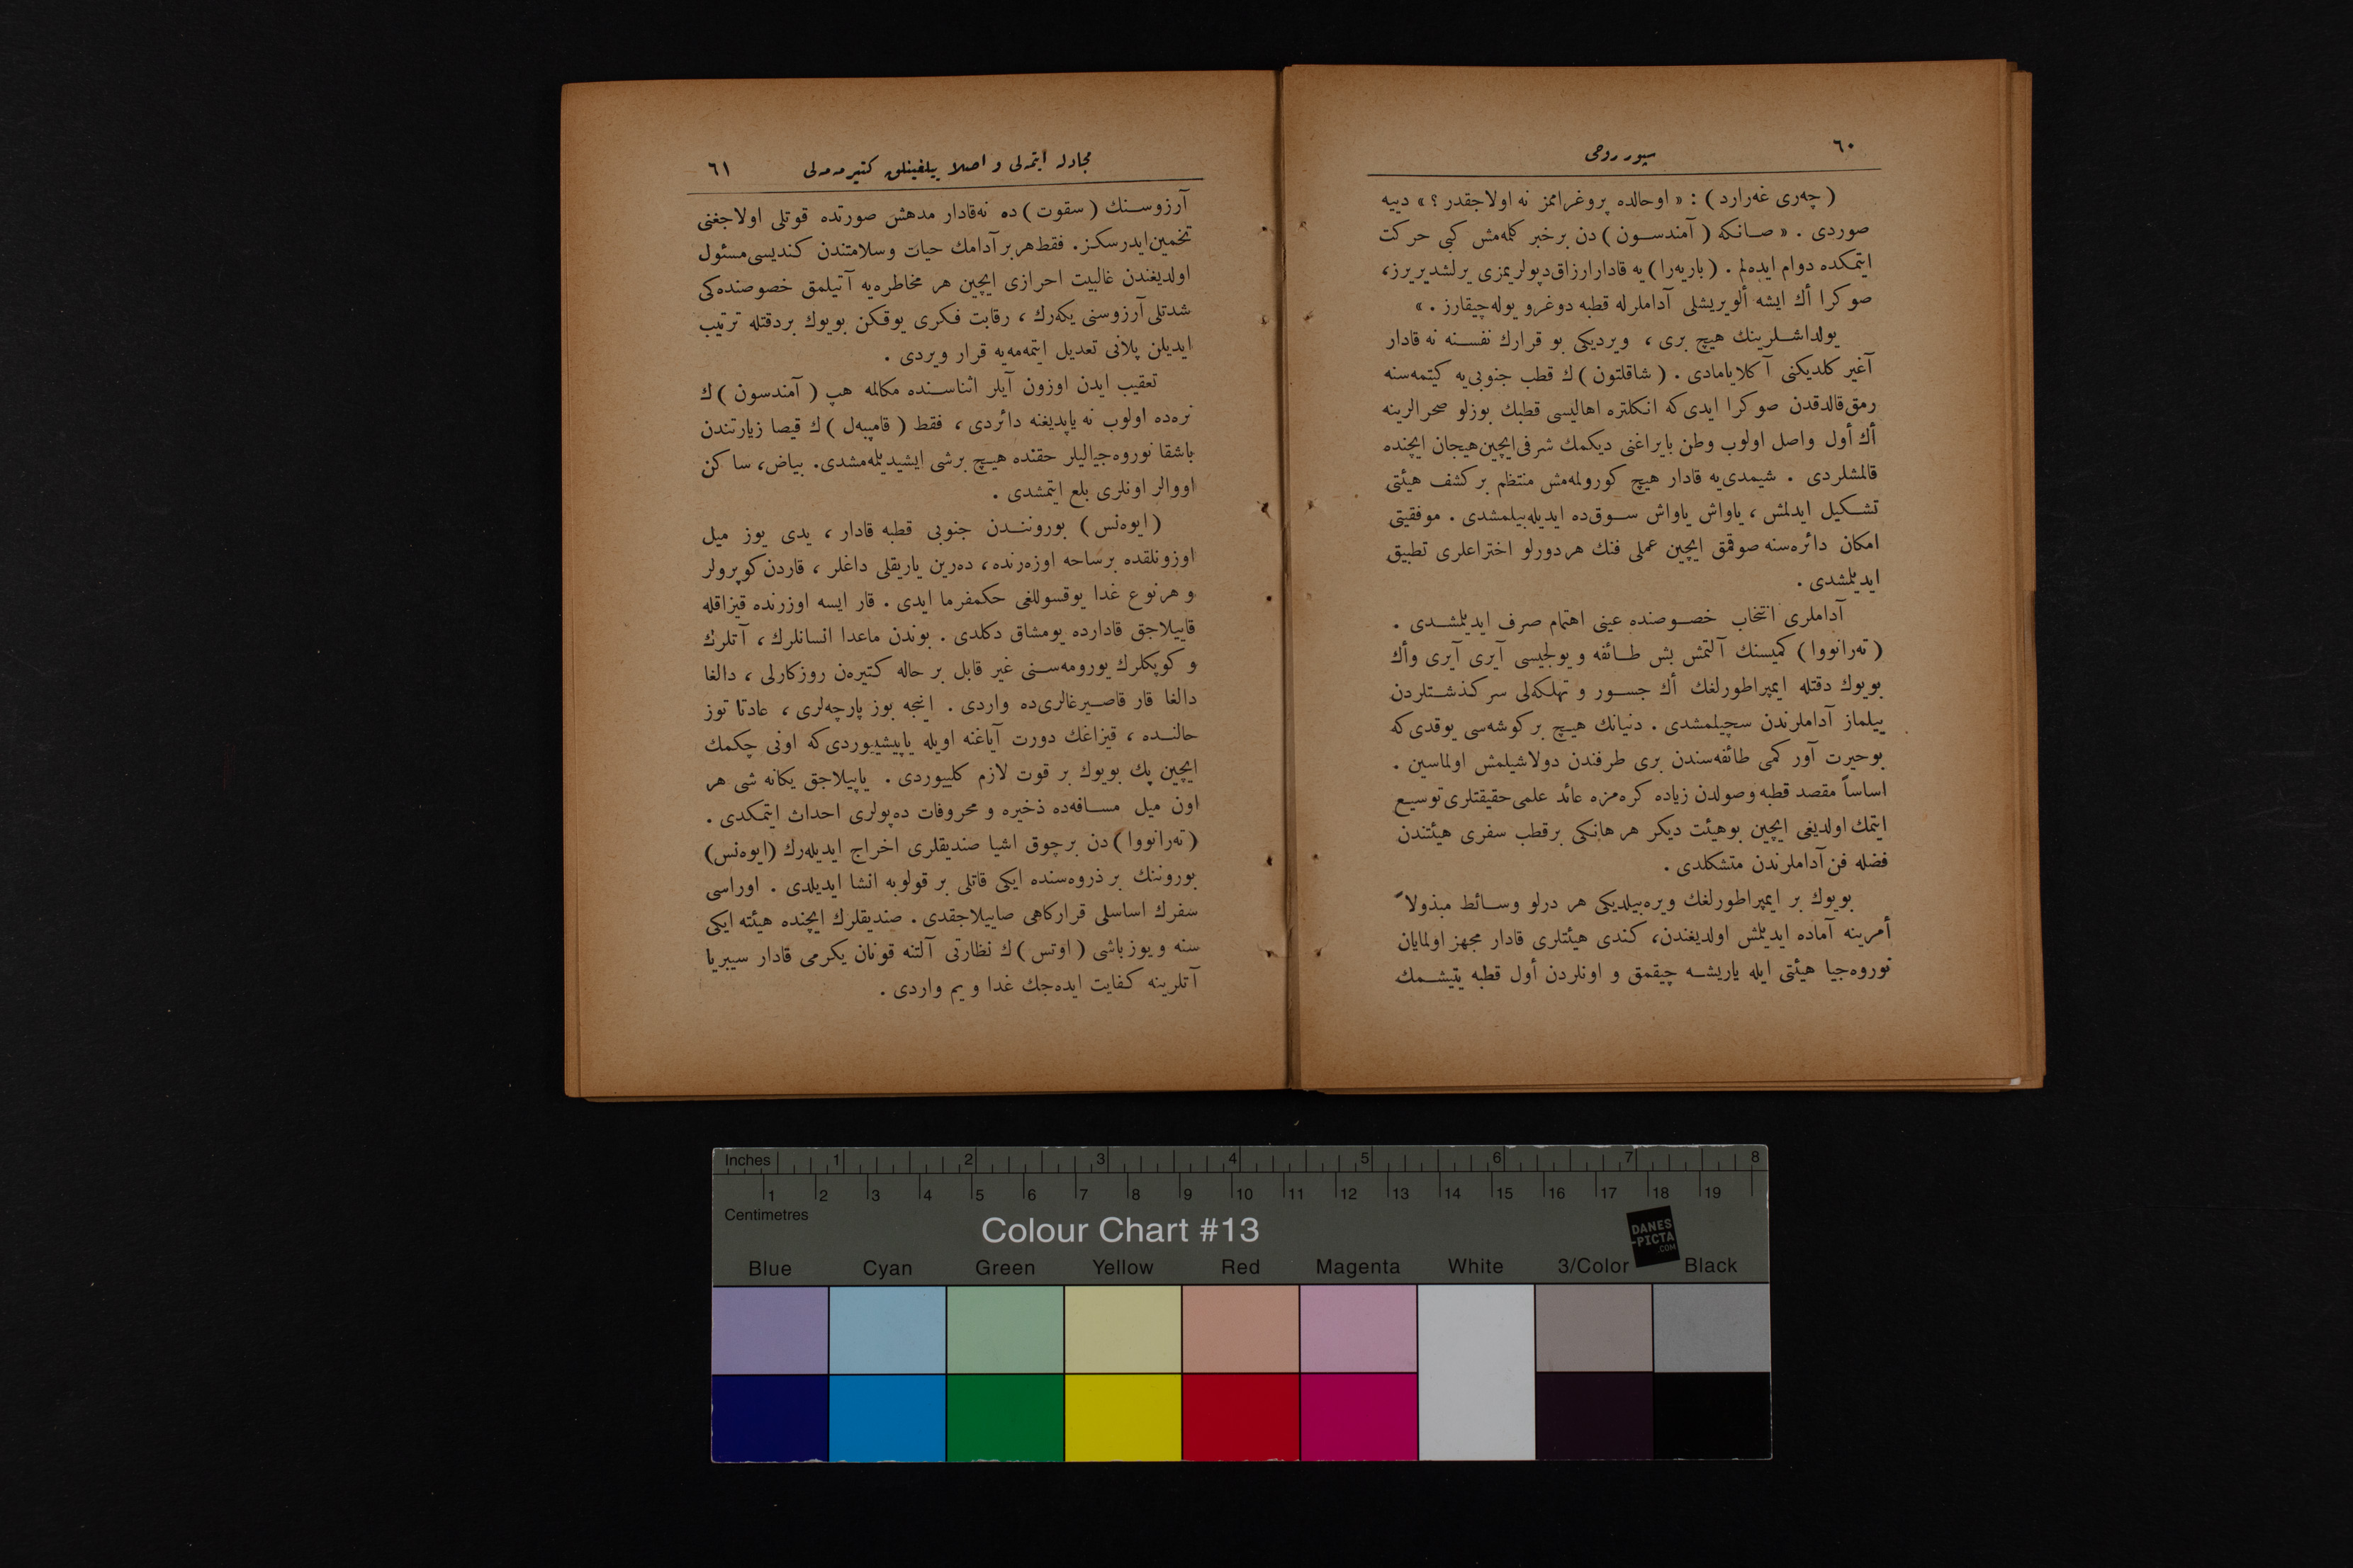 ٦٠
سپور روحی
( چه‌ری غه‌رارد ) : « اوحالده پروغرامز نه اولاجقدر ؟ » دییه
صوردی . « صانكه ( آمندسون ) دن برخبر كله‌مش كبی حركت
ایتمكده دوام ایده‌لم . ( باریه‌را ) یه قادارارزاق دپولریمزی یرلشدیریرز،
صوكرا أك ایشه ألویریشلی آداملرله قطبه دوغرو یوله‌چیقارز . »
یولداشلرینك هیچ بری ، ویردیكی بو قرارك نفسنه نه قادار
آغیر كلدیكنی آكلایامادی . ( شاقلتون ) ك قطب جنوبی‌یه كیتمه‌سنه
رمق قالدقدن صوكرا ایدی‌كه انكلتره اهالیسی قطبك بوزلو صحرالرینه
أك أول واصل اولوب وطن بایراغنی دیكمك شرفی‌ایچین‌هیجان ایچنده
قالمشلردی . شیمدی‌یه قادار هیچ كورولمه‌مش منتظم بركشف هیئتی
تشكیل ایدلمش ، یاواش یاواش سوق‌ده ایدیله‌بیلمشدی . موفقیتی
امكان دائره‌سنه صوقمق ایچین عملی فنك هردورلو اختراعلری تطبیق
ایدیلمشدی .
آداملری انتخاب خصوصنده عینی اهتمام صرف ایدیلمشدی .
( ته‌رانووا ) كمیسنك آلتمش بش طائفه و یولجیسی آیری آیری وأك
بویوك دقتله ایمپراطورلغك أك جسور و تهلكه‌لی سركذشتلردن
ییلماز آداملرندن سچیلمشدی . دنیانك هیچ بركوشه‌سی یوقدی‌كه
بوحیرت آور كمی طائفه‌سندن بری طرفندن دولاشیلمش اولماسین .
اساساً مقصد قطبه وصولدن زیاده كره‌مزه عائد علمی‌حقیقتلری‌توسیع
ایتمك اولدیغی ایچین بوهیئت دیكر هر هانكی برقطب سفری هیئتندن
فضله فن آداملرندن متشكلدی .
بویوك بر ایمپراطورلغك ویره‌بیلدیكی هر درلو وسائط مبذولاً
أمرینه آماده ایدیلمش اولدیغندن، كندی هیئتلری قادار مجهز اولمایان
نوروه‌جیا هیئتی ایله یاریشه چیقمق و اونلردن أول قطبه یتیشمك
مجادله ایتمه‌لی و اصلا ییلغینلق كتیرمه‌مه‌لی
٦١
آرزوسنك ( سقوت ) ده نه‌قادار مدهش صورتده قوتلی اولاجغنی
تخمین‌ایدرسكز . فقط‌هربرآدامك حیات وسلامتندن كندیسی‌مسئول
اولدیغندن غالبیت احرازی ایچین هر مخاطره‌یه آتیلمق خصوصنده‌كی
شدتلی آرزوسنی یكه‌رك ، رقابت فكری یوقكن بویوك بردقتله ترتیب
ایدیلن پلانی تعدیل ایتمه‌مه‌یه قرار ویردی .
تعقیب ایدن اوزون آیلر اثناسنده مكالمه هپ ( آمندسون ) ك
نره‌ده اولوب نه یاپدیغنه دائردی ، فقط ( قامپبه‌ل ) ك قیصا زیارتندن
باشقا نوروه‌جیالیلر حقنده هیچ برشی ایشیدیلمه‌مشدی. بیاض، ساكن
اووالر اونلری بلع ایتمشدی .
( ایوه‌نس ) بوروننندن جنوبی قطبه قادار ، یدی یوز میل
اوزونلقده برساحه اوزه‌رنده ، ده‌رین یاریقلی داغلر ، قاردن كوپرولر
و هرنوع غدا یوقسوللغی حكمفرما ایدی . قار ایسه اوزرنده قیزاقله
قاییلاجق قادارده یومشاق دكلدی . بوندن ماعدا انسانلرك ، آتلرك
و كوپكلرك یورومه‌سنی غیر قابل بر حاله كتیره‌ن روزكارلی ، دالغا
دالغا قار قاصیرغالری‌ده واردی . اینجه بوز پارچه‌لری ، عادتا توز
حالنده ، قیزاغك دورت آیاغنه اویله یاپیشییوردی‌كه اونی چكمك
ایچین پك بویوك بر قوت لازم كلییوردی . یاپیلاجق یكانه شی هر
اون میل مسافه‌ده ذخیره و محروقات ده‌پولری احداث ایتمكدی .
( ته‌رانووا ) دن برچوق اشیا صندیقلری اخراج ایدیله‌رك ( ایوه‌نس )
بورونننك بر ذروه‌سنده ایكی قاتلی بر قولوبه انشا ایدیلدی . اوراسی
سفرك اساسلی قراركاهی صاییلاجقدی . صندیقلرك ایچنده هیئته ایكی
سنه و یوزباشی ( اوتس ) ك نظارتی آلتنه قونان یكرمی قادار سیبریا
آتلرینه كفایت ایده‌جك غدا و یم واردی .
Inches 1 2 3 4 5 6 7 8
1 2 3 4 5 6 7 8 9 10 11 12 13 14 15 16 17 18 19
Centimetres
Colour Chart #13
DANES
-PICTA
.COM
Blue Cyan Green Yellow Red Magenta White 3/Color Black